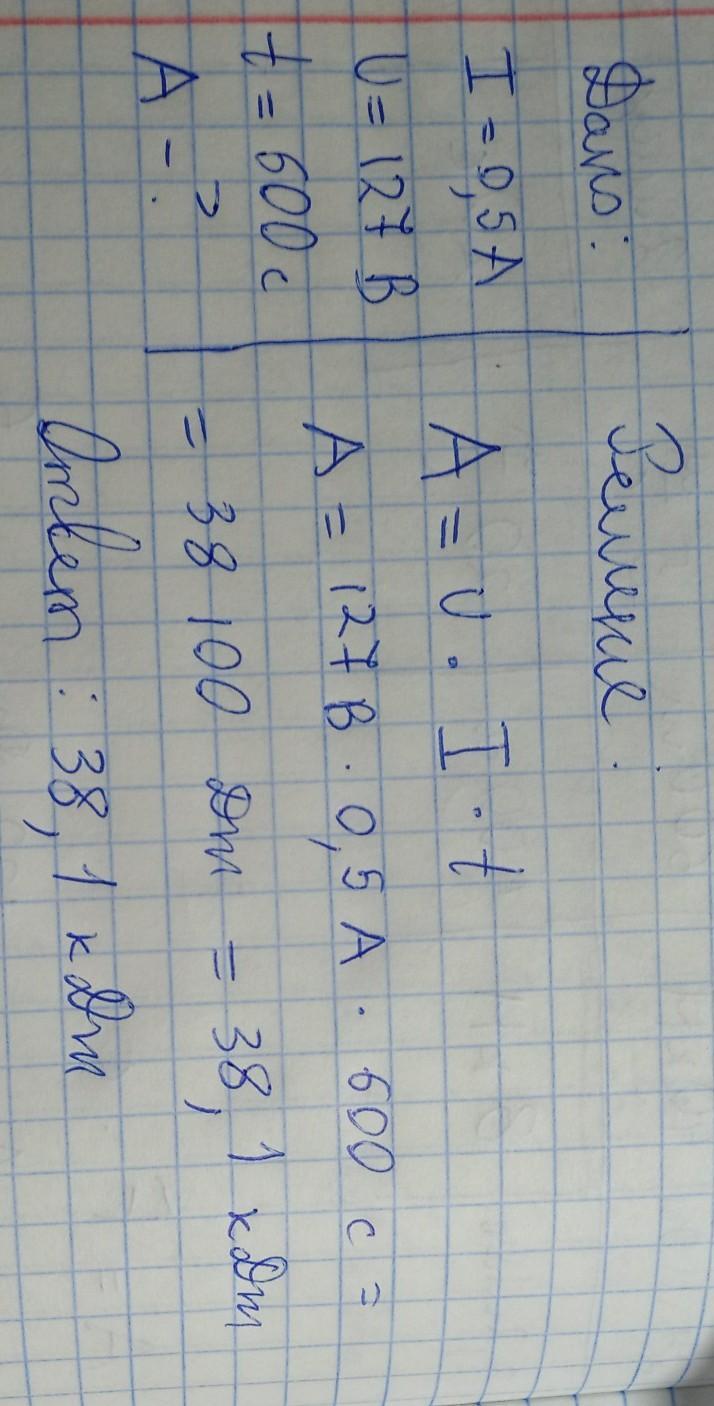 Дано:
I = 0,5 А
U = 127 В
t = 600 с
А - ?
Решение:
А = U · I · t
А = 127 В · 0,5 А · 600 с =
= 38 100 Дж = 38,1 кДж
Ответ: 38,1 кДж